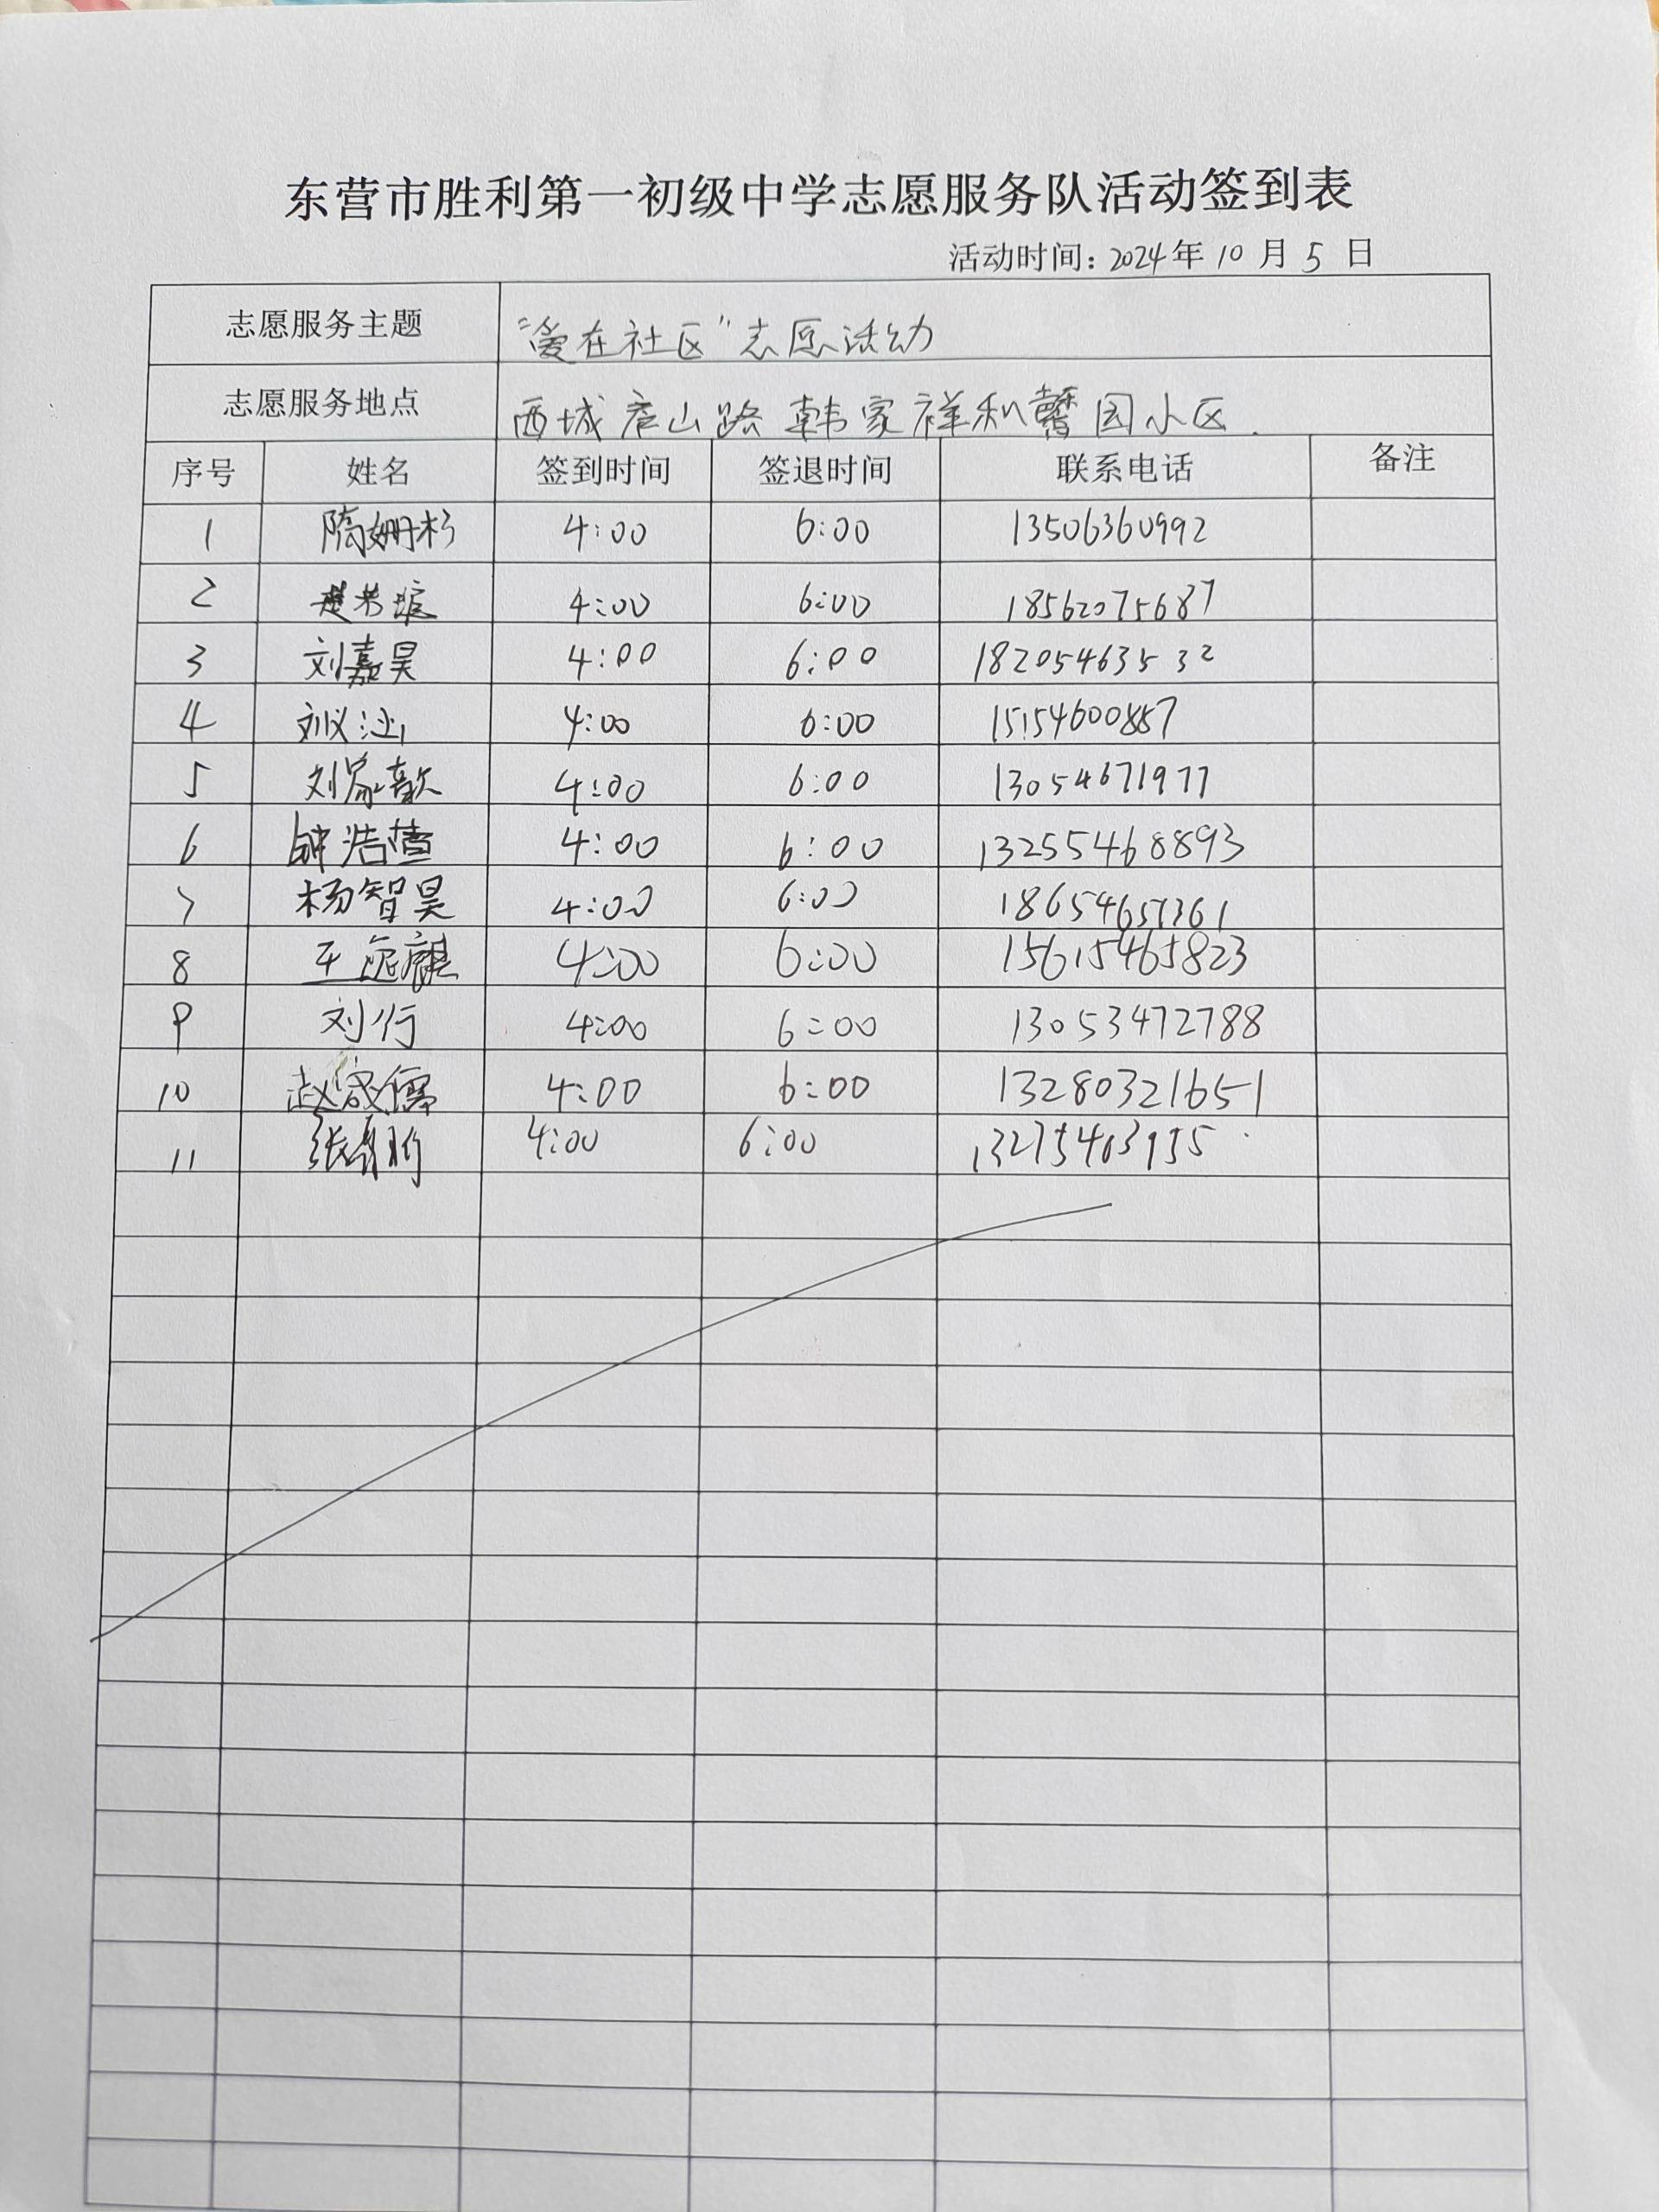 东营市胜利第一初级中学志愿服务队活动签到表
活动时间：2024年 10 月 5 日
志愿服务主题 “爱在社区”志愿活动
志愿服务地点 西城庐山路韩家祥和馨园小区.
序号 姓名 签到时间 签退时间 联系电话 备注
1 隋姗杉 4:00 6:00 13506360992
2 4:00 6:00 18562075687
3 刘嘉昊 4:00 6:00 18205463532
4 刘议 4:00 6:00 15154600887
5 刘家歆 4:00 6:00 13054671977
6 钟浩萱 4:00 6:00 13255468893
7 杨智昊 4:00 6:00 18654657361
8 王逸麒 4:00 6:00 15615465823
9 刘行 4:00 6:00 13053472788
10 赵宬儒 4:00 6:00 13280321651
11 张 4:00 6:00